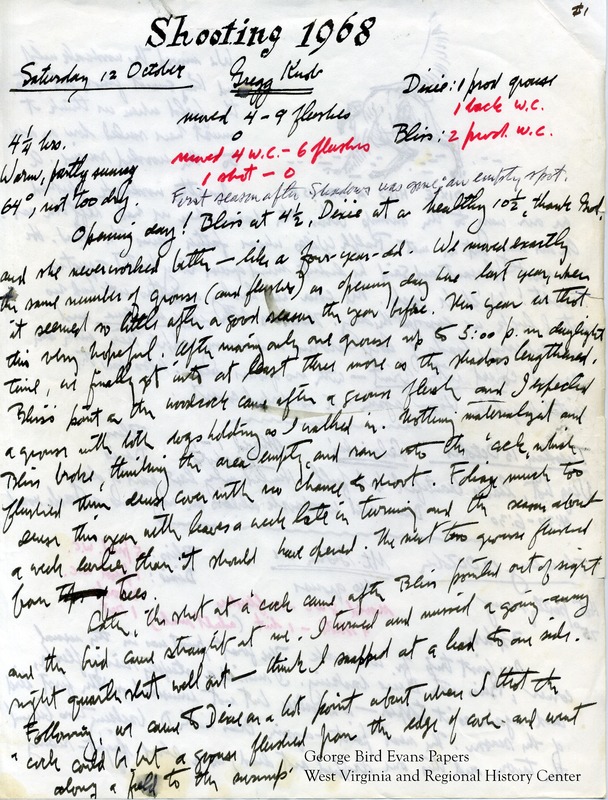 #1
Shooting 1968
Saturday 12 October
Gregg Knob
Dixie: 1 prod grouse
1 back W.C.
Bliss: 2 prod. W.C.
moved 4 - 9 flushes
0
moved 4 W.C. - 6 flushes
1 shot - 0
4 1/4 hrs.
Warm, partly sunny
64°, not too dry.
First season after Shadows was gone, an empty spot.
Opening day! Bliss at 4 1/2, Dixie at a healthy 10 1/2, thank God,
and she never worked better — like a four-year-old. We moved exactly
the same number of grouse (and flushes) as opening day here last year, when
it seemed so little after a good season the year before. This year is that
this very hopeful. After moving only one grouse up to 5:00 p.m. daylight
time, we finally got into at least three more as the shadows lengthened.
Bliss's point on the woodcock came after a grouse flush and I expected
a grouse with both dogs holding as I walked in. Nothing materialized and
Bliss broke, thinking the area empty, and ran into the 'cock, which
flushed thru dense cover with no chance to shoot. Foliage much too
dense this year with leaves a week late in turning and the season about
a week earlier than it should have opened. The next two grouse flushed
from trees.
Later, the shot at a cock came after Bliss pointed out of sight
and the bird came straight at me. I turned and missed a going-away
right quarter shot well out — think I snapped at a lead to one side.
Following, we came to Dixie on a hot point about where I thot the
a cock could be but a grouse flushed from the edge of cover and went
along a field to the swamp.
George Bird Evans Papers
West Virginia and Regional History Center